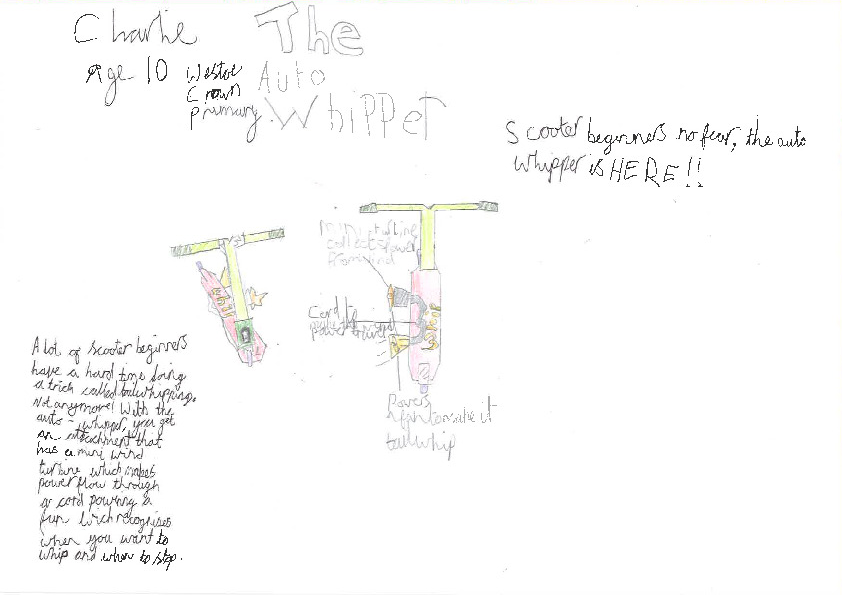 Charlie
Age 10
Westoe
Crown
primary
The
Auto
Whippet
Scooter beginners no fear, the auto
whipper is HERE!!
Mini turbine
collects power
from wind
Cord to
power travel
Powers
fan to make it
tailwhip
A lot of scooter beginners
have a hard time doing
a trick called tailwhipping.
Not anymore! With the
auto-whipper, you get
an attachment that
has a mini wind
turbine which makes
power flow through
a cord powring a
fan wich recognises
when you want to
whip and when to stop.